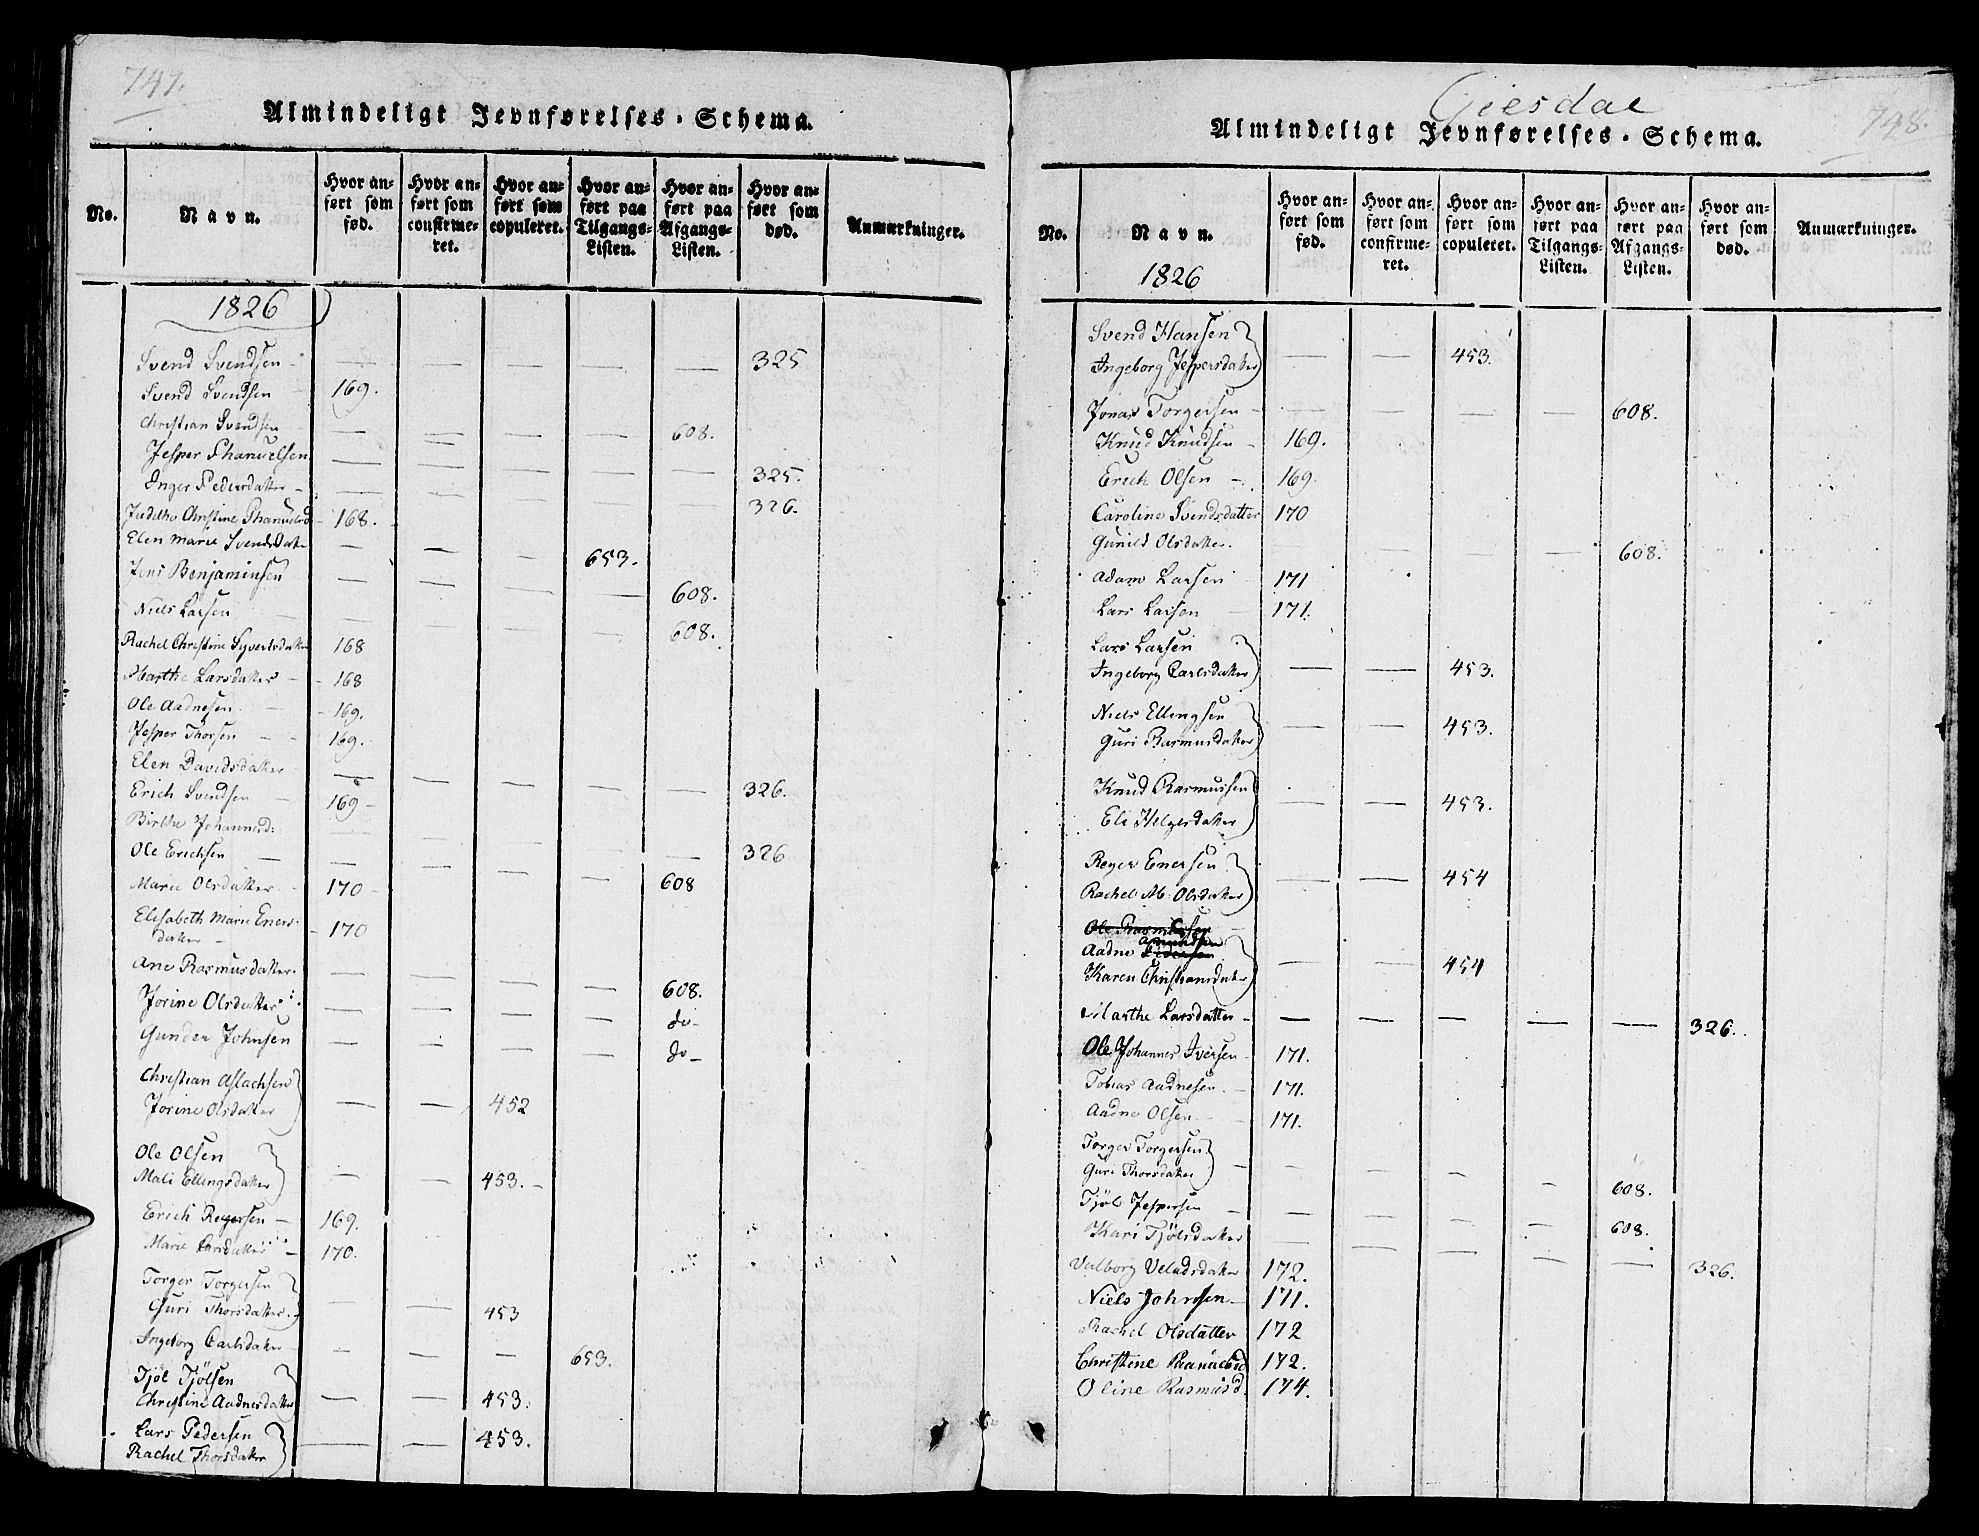 747.
Almindeligt Jevnførelses-Schema.
No.
Navn.
Hvor anført som fød.
Hvor anført som confirmeret.
Hvor anført som copuleret.
Hvor anført paa Tilgangs-Listen.
Hvor anført paa Afgangs-Listen.
Hvor anført som død.
Anmærkninger.
1826
Svend Svendsen - 325
Svend Svendsen 169.
Christian Svendsen 608.
Jesper Phanuelsen 325.
Inger Pedersdatter - 326.
Judithe Christine Phanuelsd 168.
Elen Marie Svendsdatter 653.
Jens Benjaminsen 608.
Niels Larsen 608.
Rachel Christine Syvertsdatter 168
Marthe Larsdatter - 168
Ole Aadnesen 169.
Jesper Thorsen 169.
Elen Davidsdatter 326.
Erich Svendsen 169
Birthe Johannesd: 326
Ole Erichsen 608
Marie Olsdatter 170
Elisabeth Marie Eners-
datter - 170
Ane Rasmusdatter. 608.
Jorine Olsdatter do-
Gunder Johnsen do-
Christian Aslachsen
Jorine Olsdatter 452
Ole Olsen
Mali Ellingsdatter 453.
Erich Reyersen 169.
Marie Larsdatter 170.
Torger Torgersen
Guri Thorsdatter. 453
Ingeborg Carlsdatter 653.
Tjøl Tjølsen
Christine Aadnesdatter 453.
Lars Pedersen
Rachel Thorsdatter 453.
Giesdal
748.
Almindeligt Jevnførelses-Schema.
No.
Navn.
Hvor anført som fød.
Hvor anført som confirmeret.
Hvor anført som copuleret.
Hvor anført paa Tilgangs-Listen.
Hvor anført paa Afgangs-Listen.
Hvor anført som død.
Anmærkninger.
1826
Svend Hansen
Ingeborg Jespersdatter 453.
Jonas Torgersen 608.
Knud Knudsen 169.
Erich Olsen 169.
Caroline Svendsdatter 170
Gunild Olsdatter. 608.
Adam Larsen 171
Lars Larsen 171.
Lars Larsen
Ingeborg Carlsdatter 453.
Niels Ellingsen
Guri Rasmusdatter 453.
Knud Rasmussen
Eli Helgesdatter 453.
Reyer Enersen
Rachel M. Olsdatter 454
Ole Rasmussen
Amundsen
Aadne Pedersen
Karen Christiansdatter 454
Marthe Larsdatter 326.
Ole Johannes Iversen 171.
Tobias Aadnesen. 171.
Aadne Olsen 171.
Torger Torgersen
Guri Thorsdatter 608.
Tjøl Jespersen 608.
Kari Tjølsdatter
Valborg Veladsdatter 172. 326.
Niels Johnsen 171.
Rachel Olsdatter 172
Christine Phanuelsd 172.
Oline Rasmusd. 174.